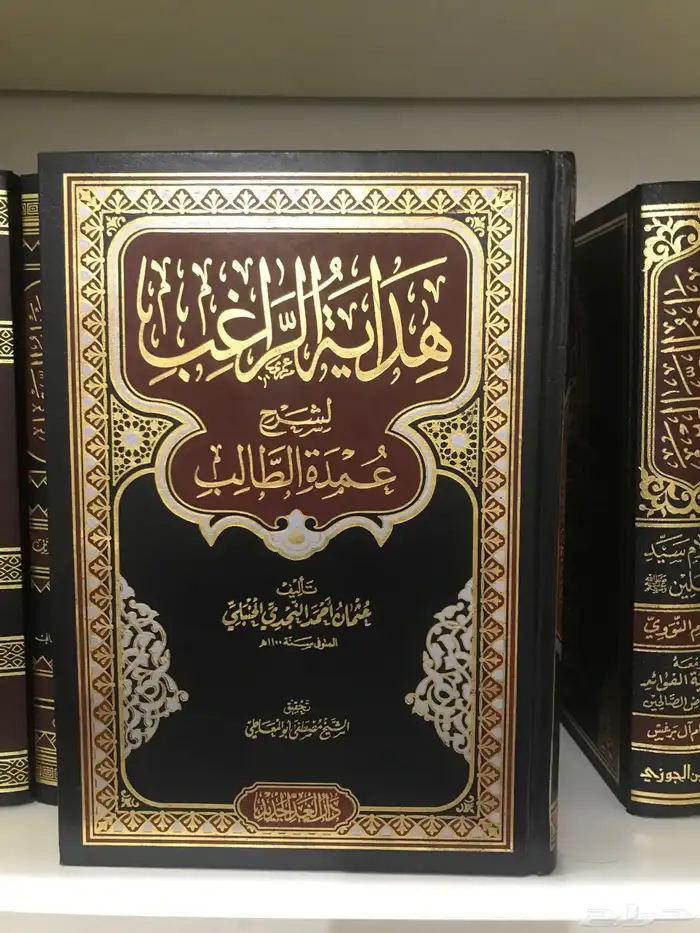 هِدَايَةُ الرَّاغِبِ
لِشَرْحِ
عُمْدَةِ الطَّالِبِ
تأليف
عثمان أحمد النجدي الحنبلي
المتوفى سنة ١١٠٠هـ
تحقيق
الشيخ مصطفى أبو المعاطي
دار الغد الجديد
سيد
ﷺ
النووي
الجوزي
حراج